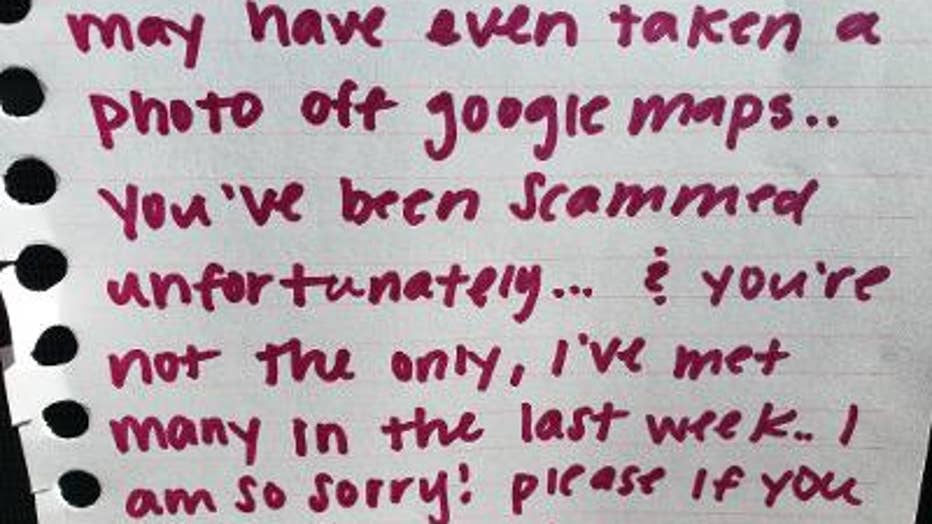 may have even taken a
photo off google maps..
you've been scammed
unfortunately... & you're
not the only, I've met
many in the last week.. I
am so sorry! please if you